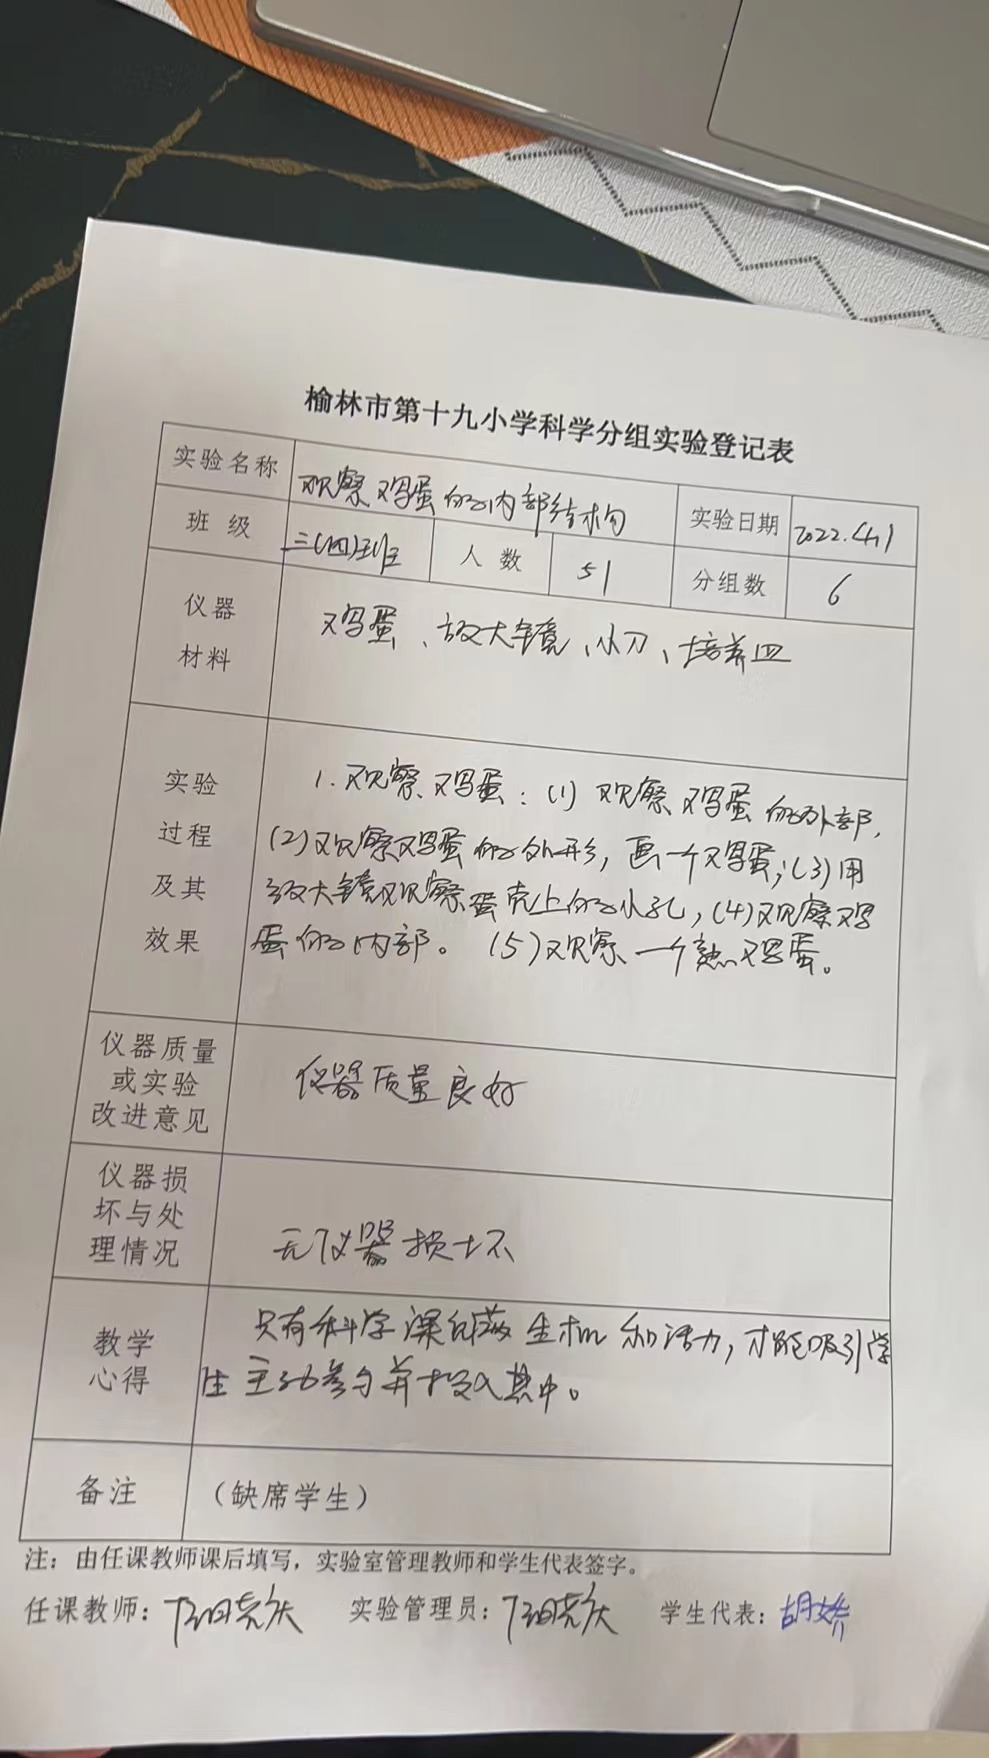 榆林市第十九小学科学分组实验登记表
实验名称 观察鸡蛋的内部结构 实验日期 2022.4.1
班 级 三(四)班 人 数 51 分组数 6
仪器
材料
鸡蛋、放大镜、小刀、培养皿
实验
过程
及其
效果
1.观察鸡蛋:(1)观察鸡蛋的外部,
(2)观察鸡蛋的外形,画一个鸡蛋;(3)用
放大镜观察蛋壳上的小孔,(4)观察鸡
蛋的内部。(5)观察一个熟鸡蛋。
仪器质量
或实验
改进意见
仪器质量良好
仪器损
坏与处
理情况
无仪器损坏
教学
心得
只有科学课充满生机和活力,才能吸引学
生主动参与并投入其中。
备注 (缺席学生)
注:由任课教师课后填写,实验室管理教师和学生代表签字。
任课教师: 实验管理员: 学生代表:胡娇